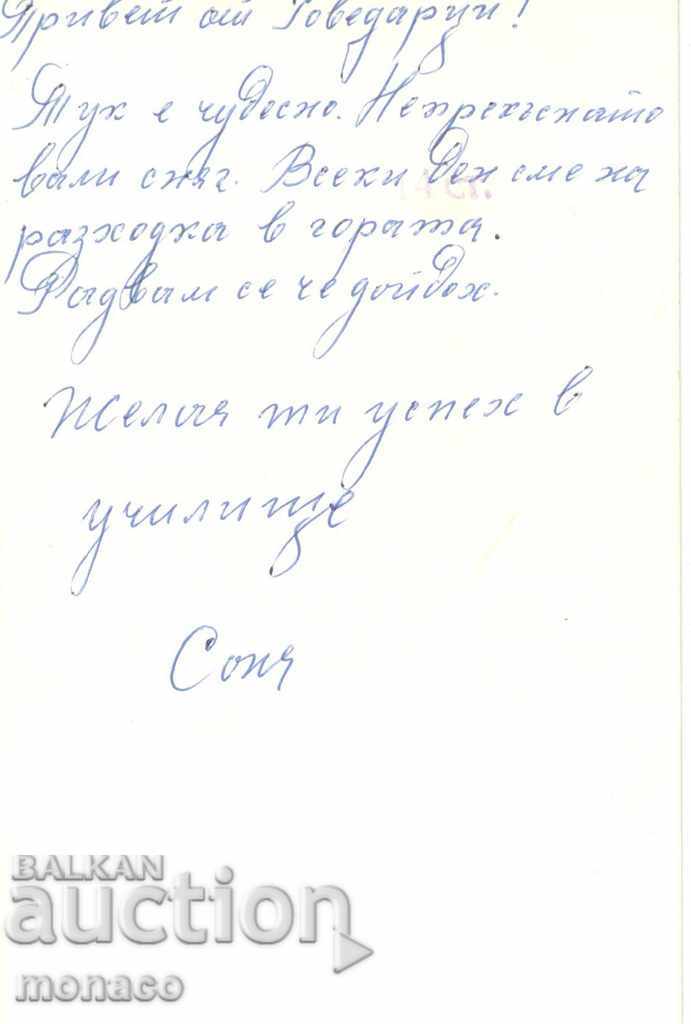 Привет от Говедарци!
Тук е чудесно. Непрекъснато
вали сняг. Всеки ден сме на
разходка в гората.
Радвам се че дойдох.
Желая ти успех в
училище
Соня
BALKAN
auction
monaco